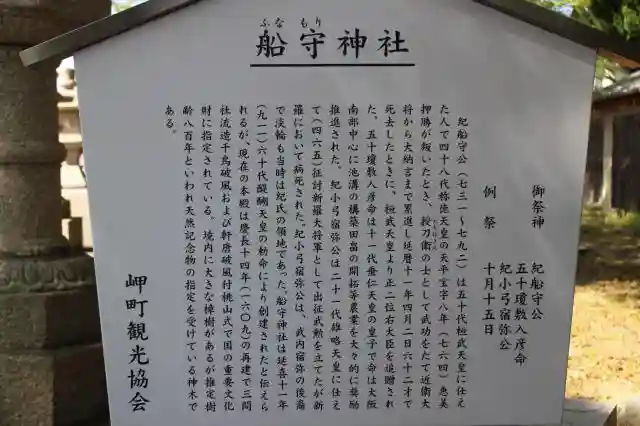 ふなもり
船守神社
御祭神　紀船守公
五十瓊敷入彦命
紀小弓宿弥公
例祭　十月十五日
紀船守公（七三一～七九二）は五十代桓武天皇に仕え
た人で四十八代称徳天皇の天平宝字八年（七六四）恵美
押勝が叛いたとき、授刀衛の士として武功をたて近衛大
将から大納言まで累進し延暦十一年四月二日六十二才で
死去したときに、桓武天皇より正二位右大臣を追贈され
た。五十瓊敷入彦命は十一代垂仁天皇の皇子で命は大阪
南部中心に池溝の構築田畠の開拓等農業を大々的に奨励
推進された。紀小弓宿弥公は二十一代雄略天皇に仕え
て（四六五）征討新羅大将軍として出征武勲を立てたが新
羅において病死された。紀小弓宿弥公は、武内宿弥の後裔
で淡輪も当時は紀氏の領地であった。船守神社は延喜十一年
（九一一）六十代醍醐天皇の勅命により創建されたと伝えら
れるが、現在の本殿は慶長十四年（一六〇九）の再建で三間
社流造千鳥破風および軒唐破風付桃山式で国の重要文化
財に指定されている。境内に大きな樟樹があるが推定樹
齢八百年といわれ天然記念物の指定を受けている神木で
ある。
岬町観光協会